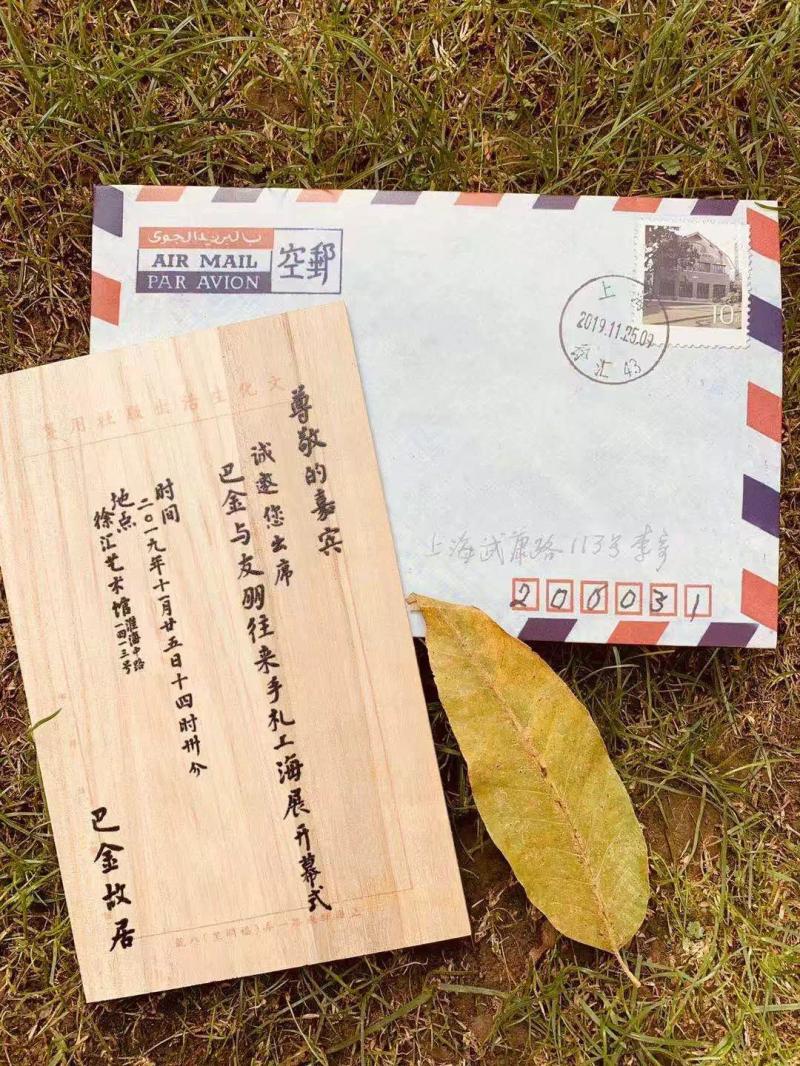 بالبريد الجوى
AIR MAIL
PAR AVION
空郵
10
上海
2019.11.25.09
汇 43
上海武康路113号
200031
文化生活出版社用箋
尊敬的嘉宾
诚邀您出席
巴金与友朋往来手札上海展开幕式
时间
二〇一九年十一月廿五日十四时卅分
地点
徐汇艺术馆
淮海中路
一四一三号
巴金故居